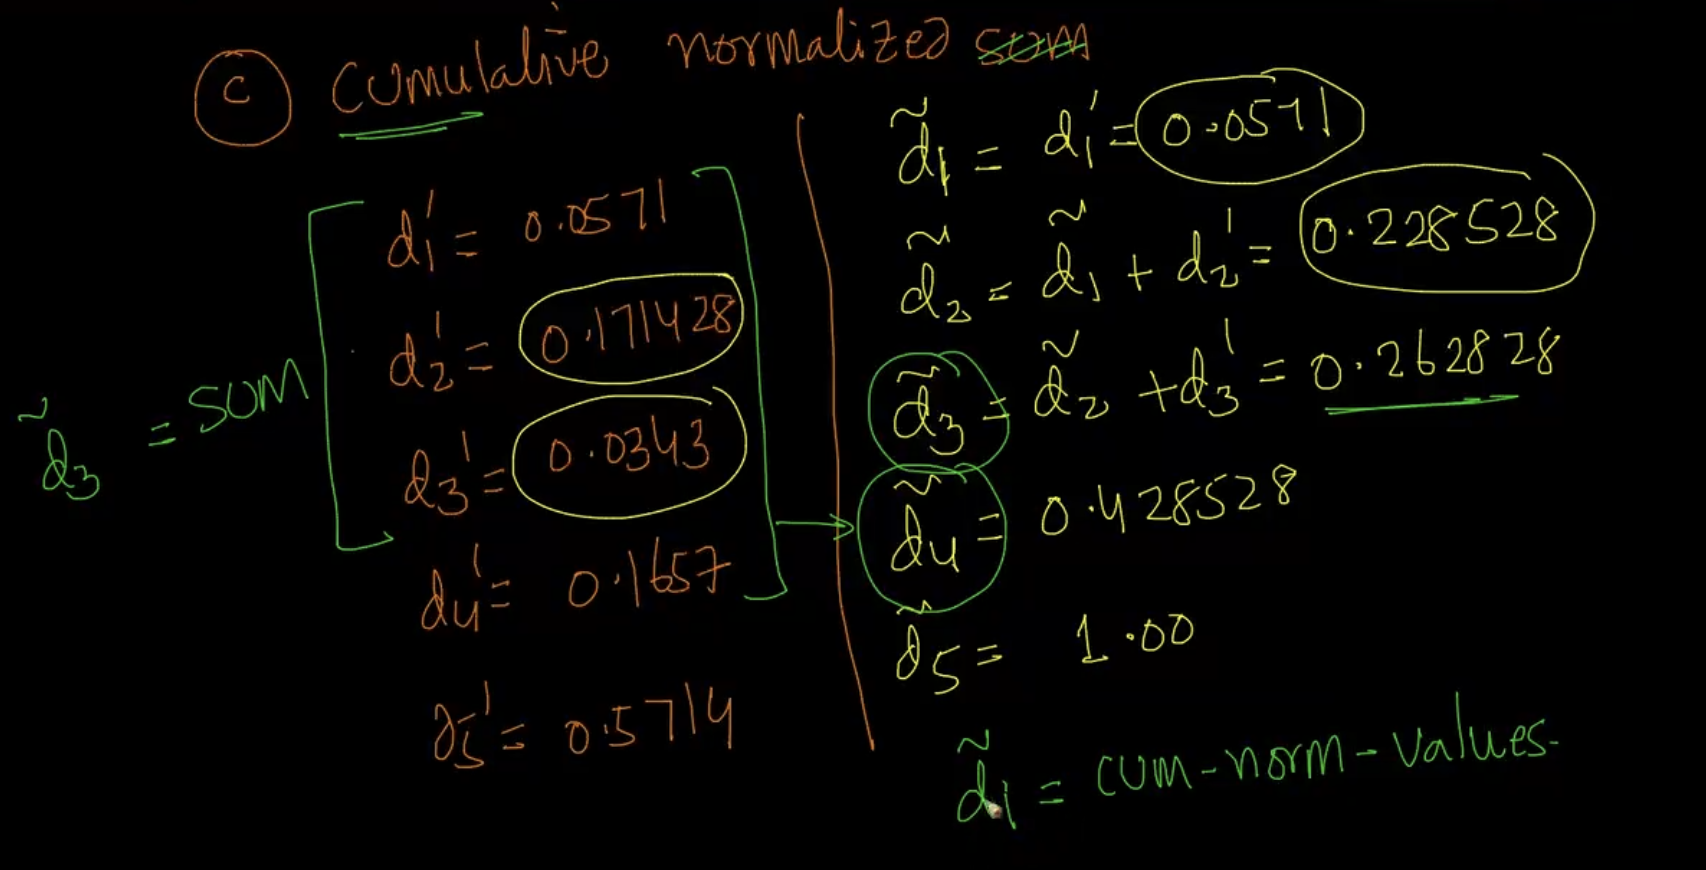 c cumulative normalized sum
d₁' = 0.0571
d₂' = 0.171428
d₃' = 0.0343
d₄' = 0.1657
d₅' = 0.5714
d̃₃ = sum
d̃₁ = d₁' = 0.0571
d̃₂ = d̃₁ + d₂' = 0.228528
d̃₃ = d̃₂ + d₃' = 0.262828
d̃₄ = 0.428528
d̃₅ = 1.00
d̃₁ = cum-norm-values